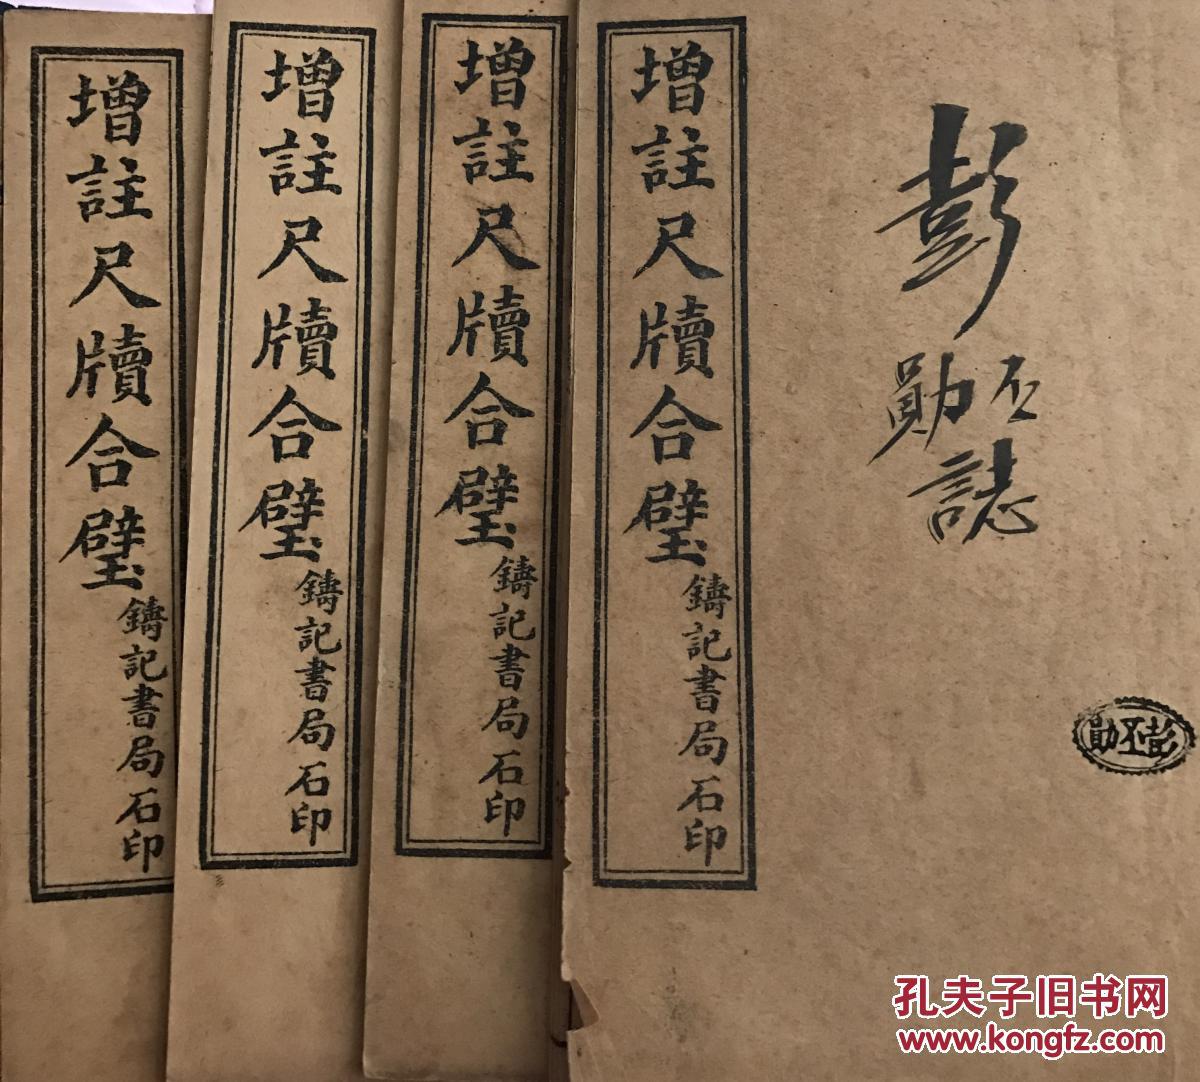 增註尺牘合璧
鑄記書局石印
增註尺牘合璧
鑄記書局石印
增註尺牘合璧
鑄記書局石印
增註尺牘合璧
鑄記書局石印
彭
丕勛
誌
彭丕勛
孔夫子旧书网
www.kongfz.com